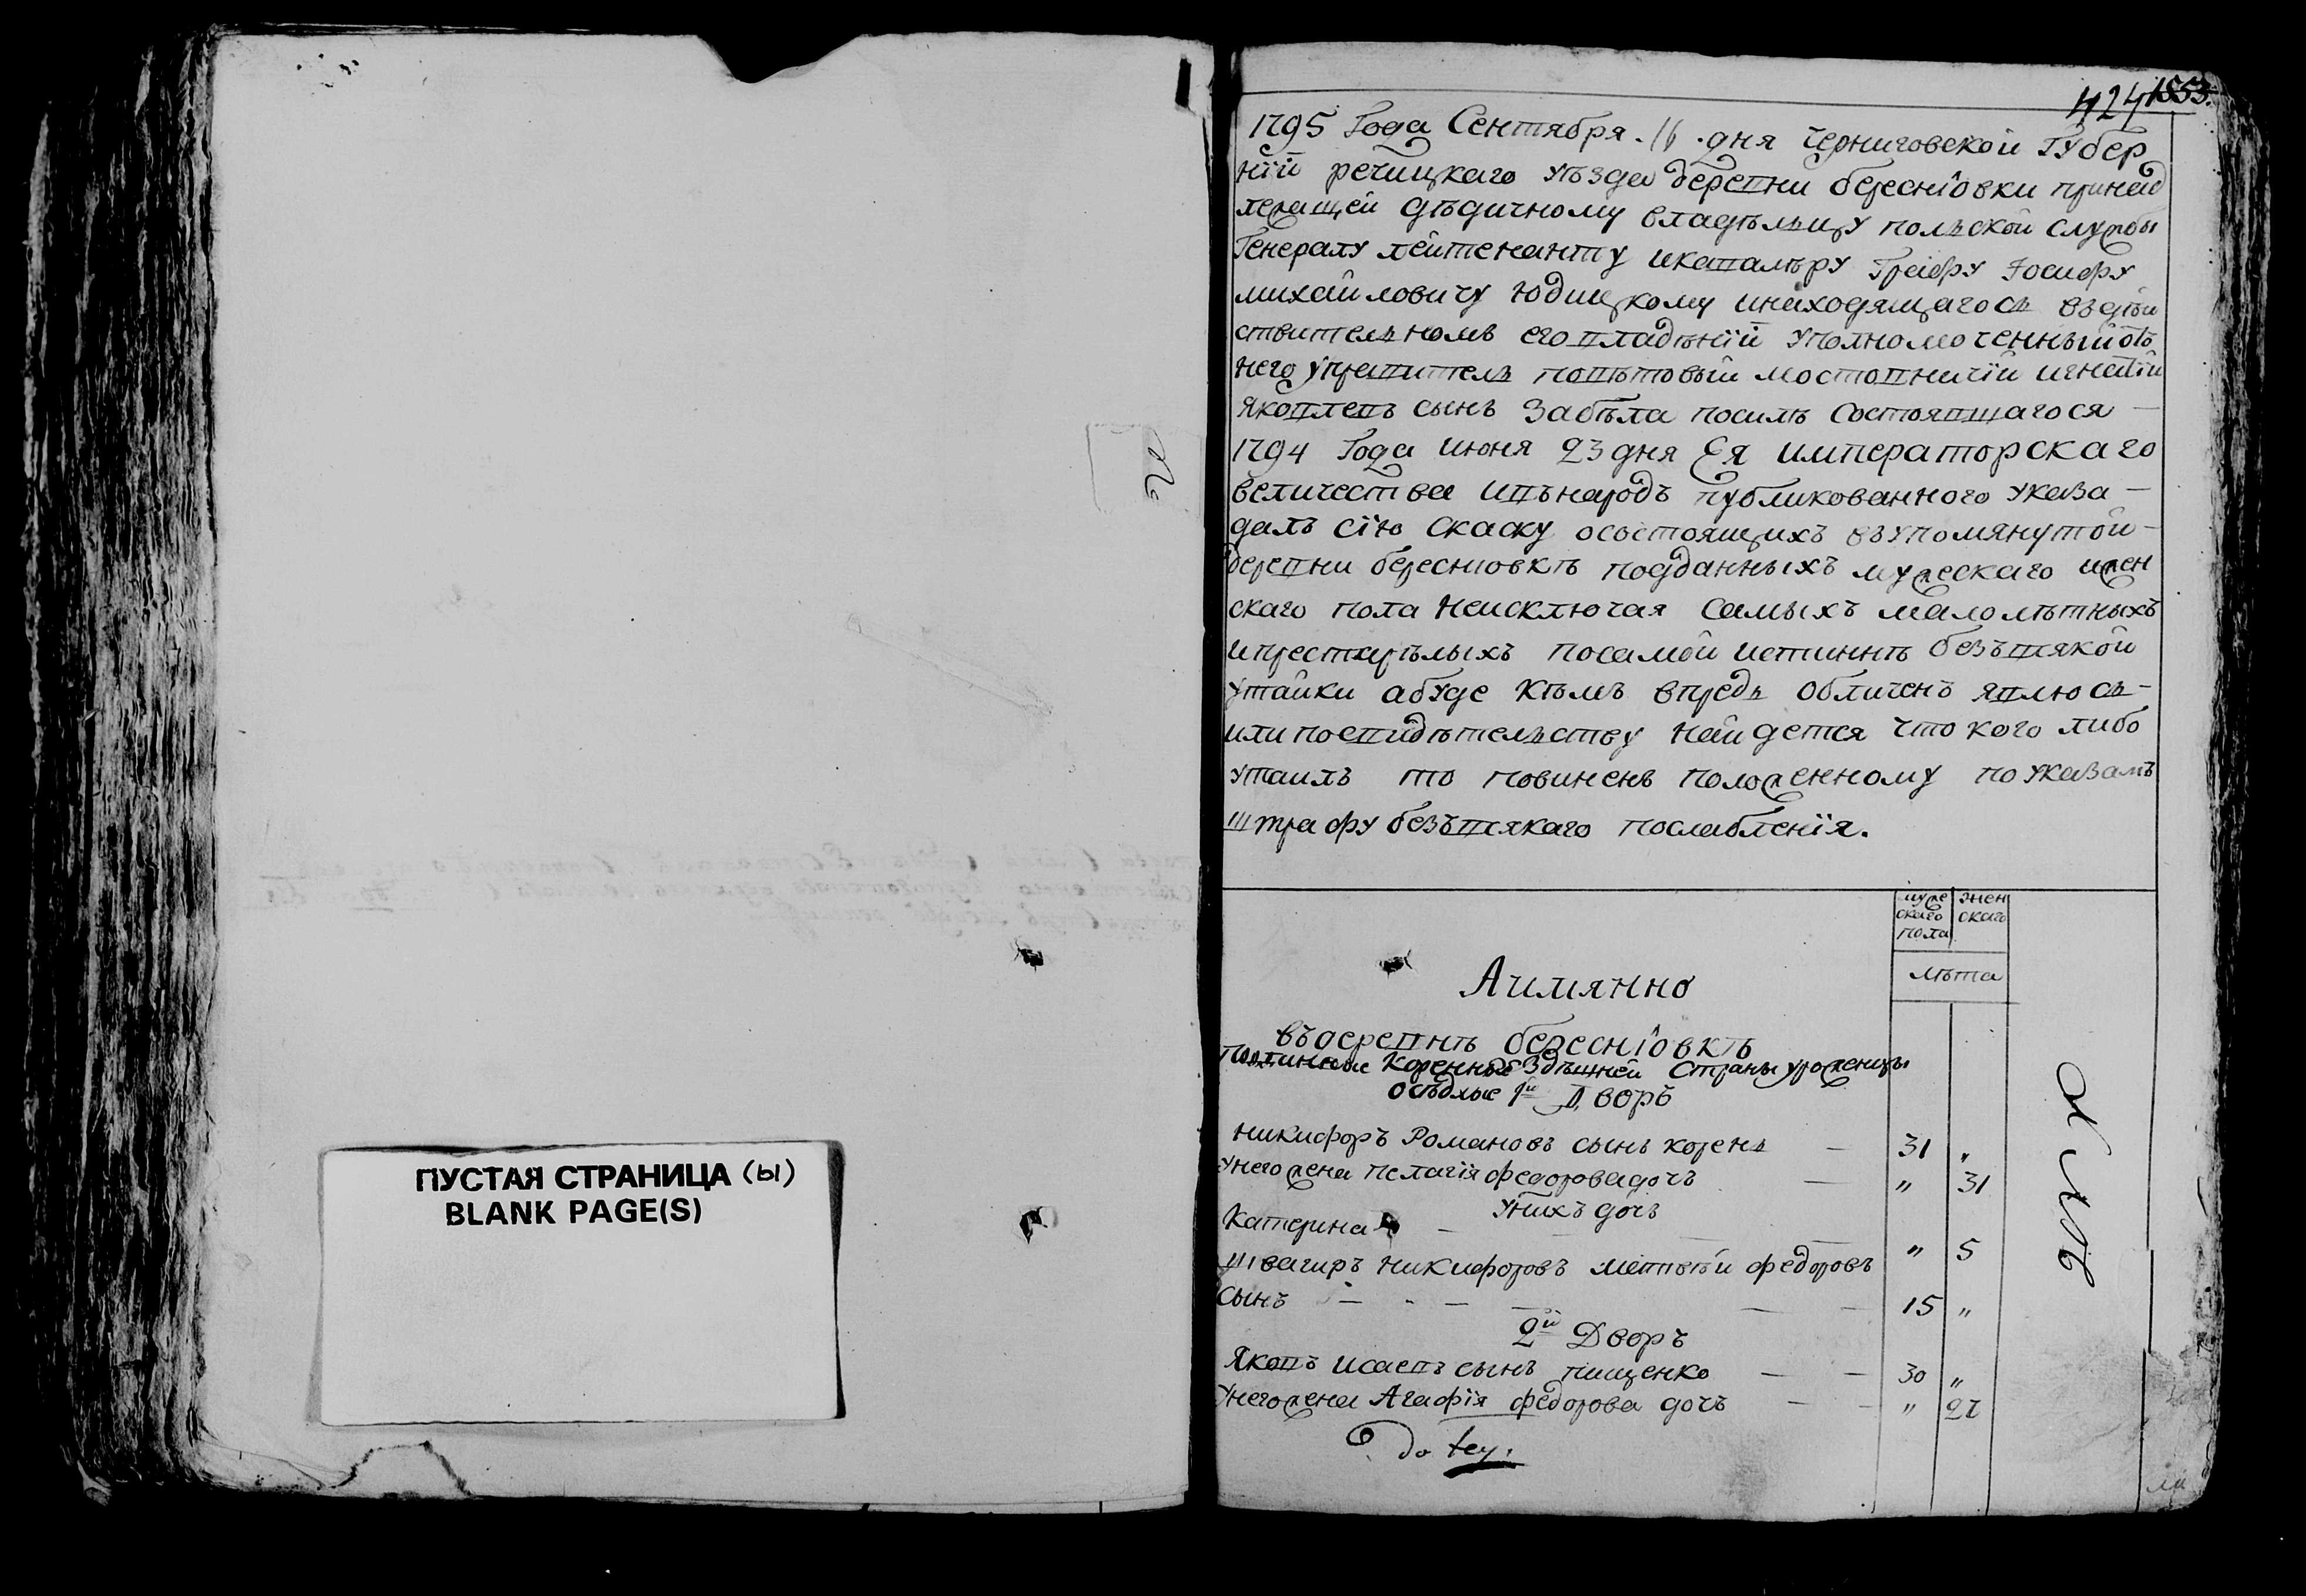 ПУСТАЯ СТРАНИЦА (ы)
BLANK PAGE(S)
424 1553.
1795 Года Сентября 16 дня Черниговской Губер
нїй речицкаго уѣзда деревни береснїовки принад
лежащей дѣдичному владѣльцу польской службы
Генералу лейтенанту икавалѣру Графу Iосифу
михайловичу Юдицкому инаходящагось въдѣй
ствительномъ его владѣнїй уполномоченный отъ
него управитель повѣтовый мостовничїй игнатїй
Яковлевъ сынъ Забѣла посилѣ состоявшагося —
1794 Года июня 23 дня Ея императорскаго
величества ивънародъ публикованного указа —
далъ сїю скаску осостоящихъ въупомянутой —
деревни береснїовкѣ подданныхъ мужескаго ижен
скаго пола неисключая самыхъ малолѣтныхъ
ипрестарѣлыхъ посамой истиннѣ безъвсякой
утайки абуде кѣмъ впредь обличенъ явлюсь —
или посвидѣтельству найдется что кого либо
утаилъ то повиненъ положенному по указамъ
штрафу безъвсякаго послабленїя.
муже
скаго
пола
жен
скаго
лѣта
Аимянно
въдеревнѣ береснїовкѣ
Коренные Здѣшней Страны уроженцы
осѣдлые 1й Дворъ
никифоръ Романовъ сынъ корень — 31 „
Унего жена пелагїя федорова дочъ — „ 31
Унихъ дочъ
Катерина — „ 5
швагиръ никифоровъ матвѣй федоровъ
сынъ — 15 „
2й Дворъ
Яковъ исаевъ сынъ пищенко — 30 „
Унего жена Агафїя федорова дочъ — „ 27
do tey.